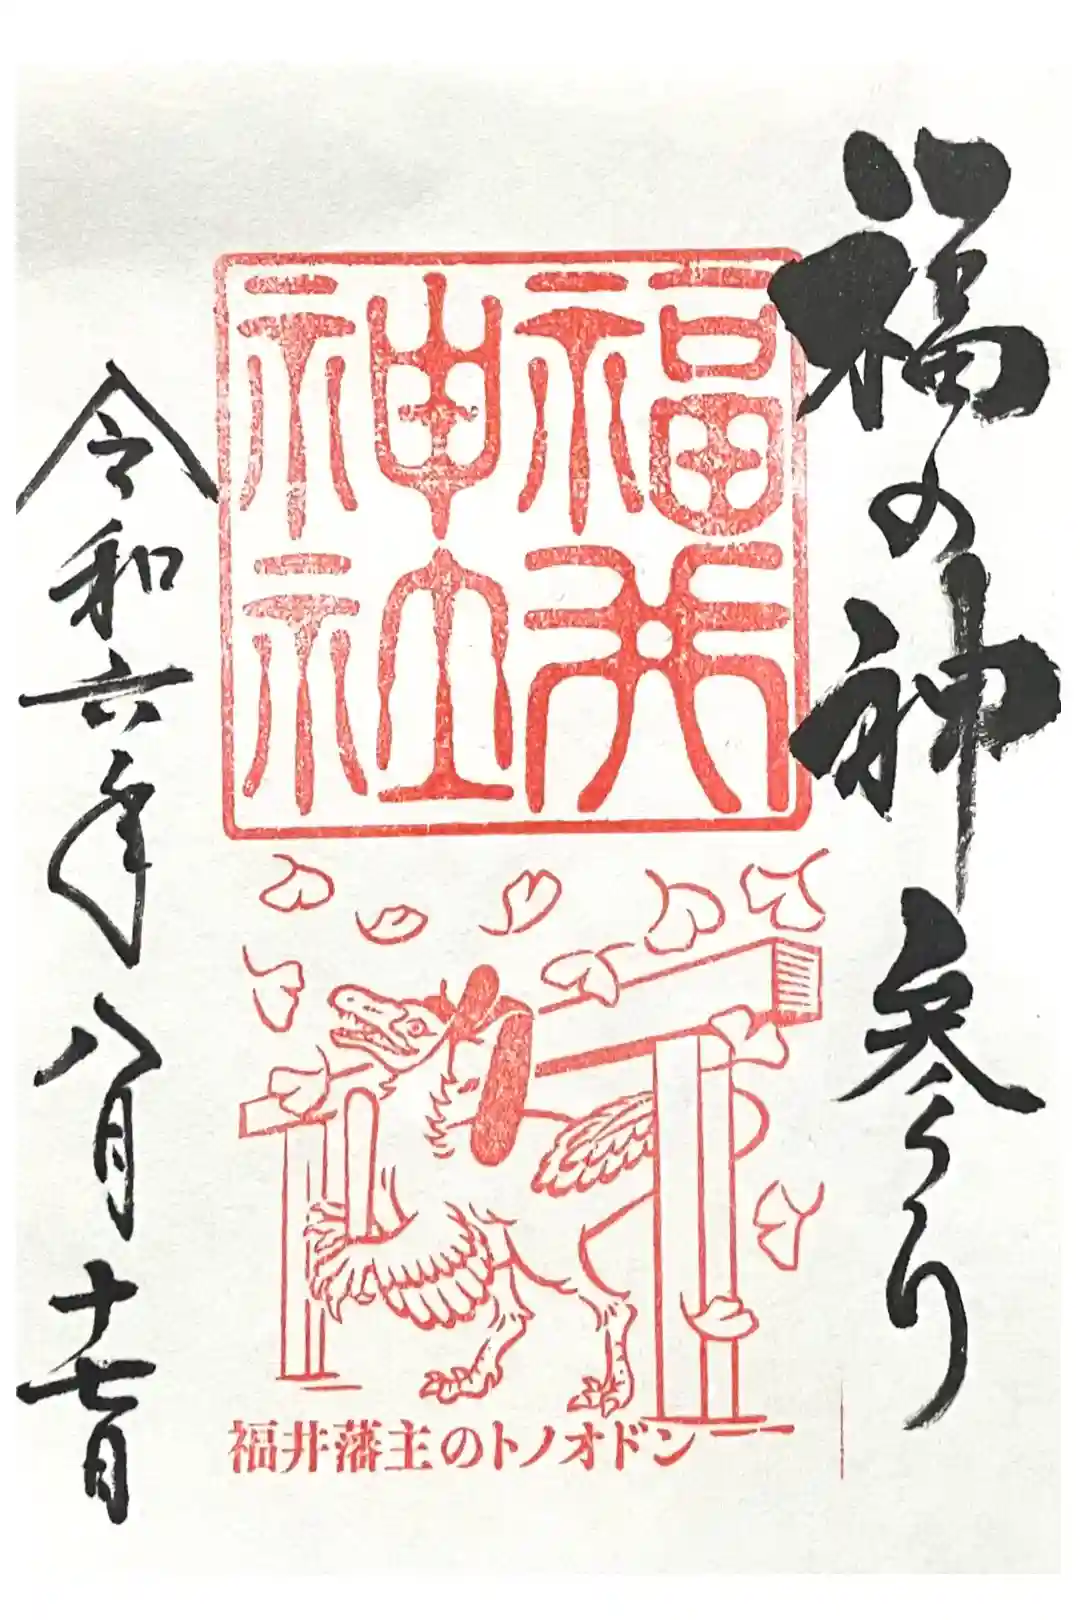 福の神参り
福井
神社
福井藩主のトノオドン
令和六年八月十七日